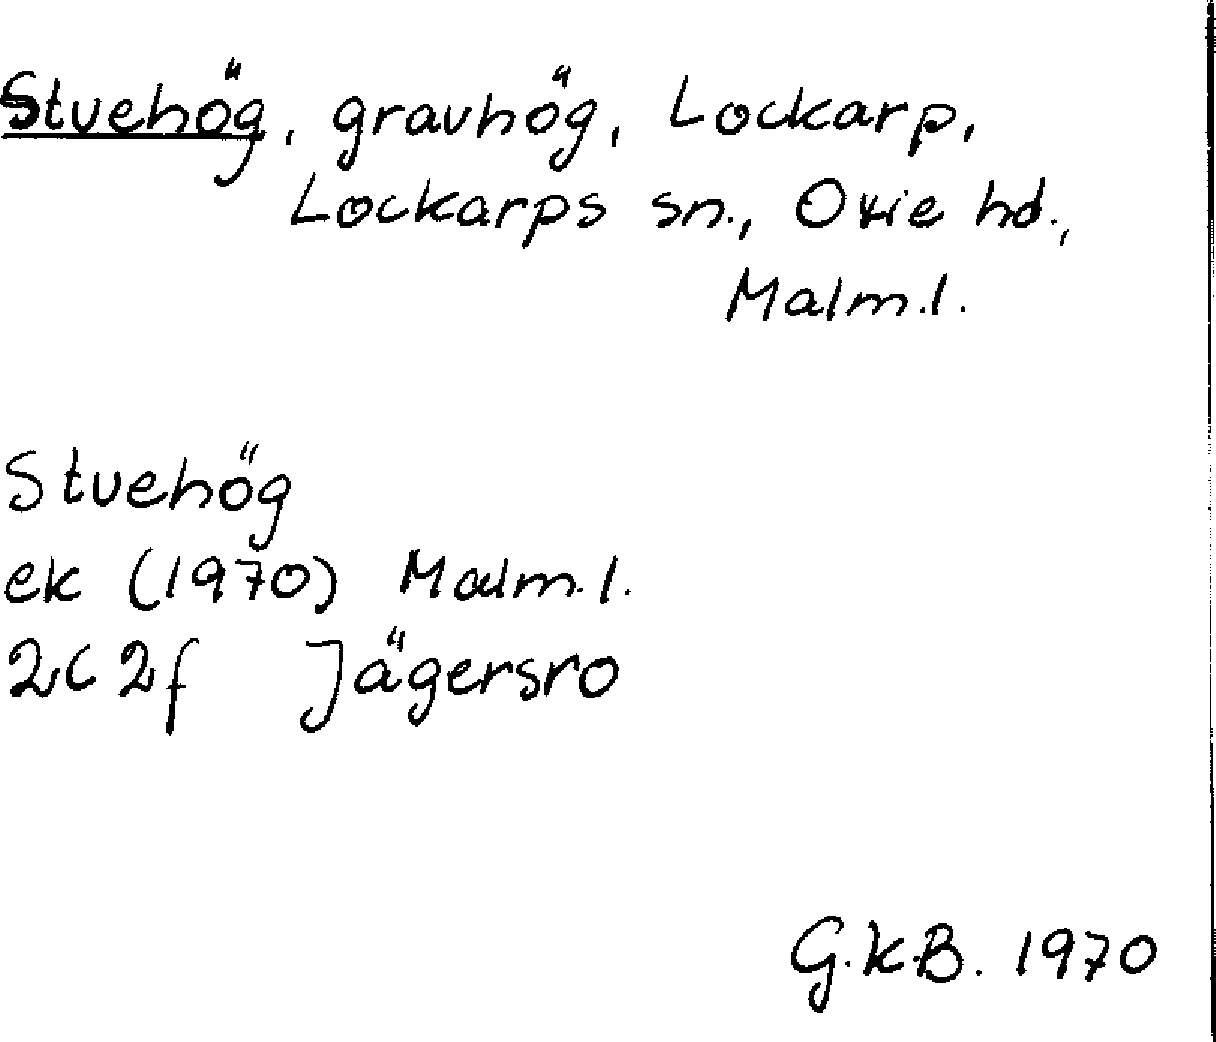 Stuehög, gravhög, Lockarp,
Lockarps sn., Oxie hd.,
Malm.l.
Stuehög
ek (1970) Malm.l.
2C2f Jägersro
G.K.B. 1970